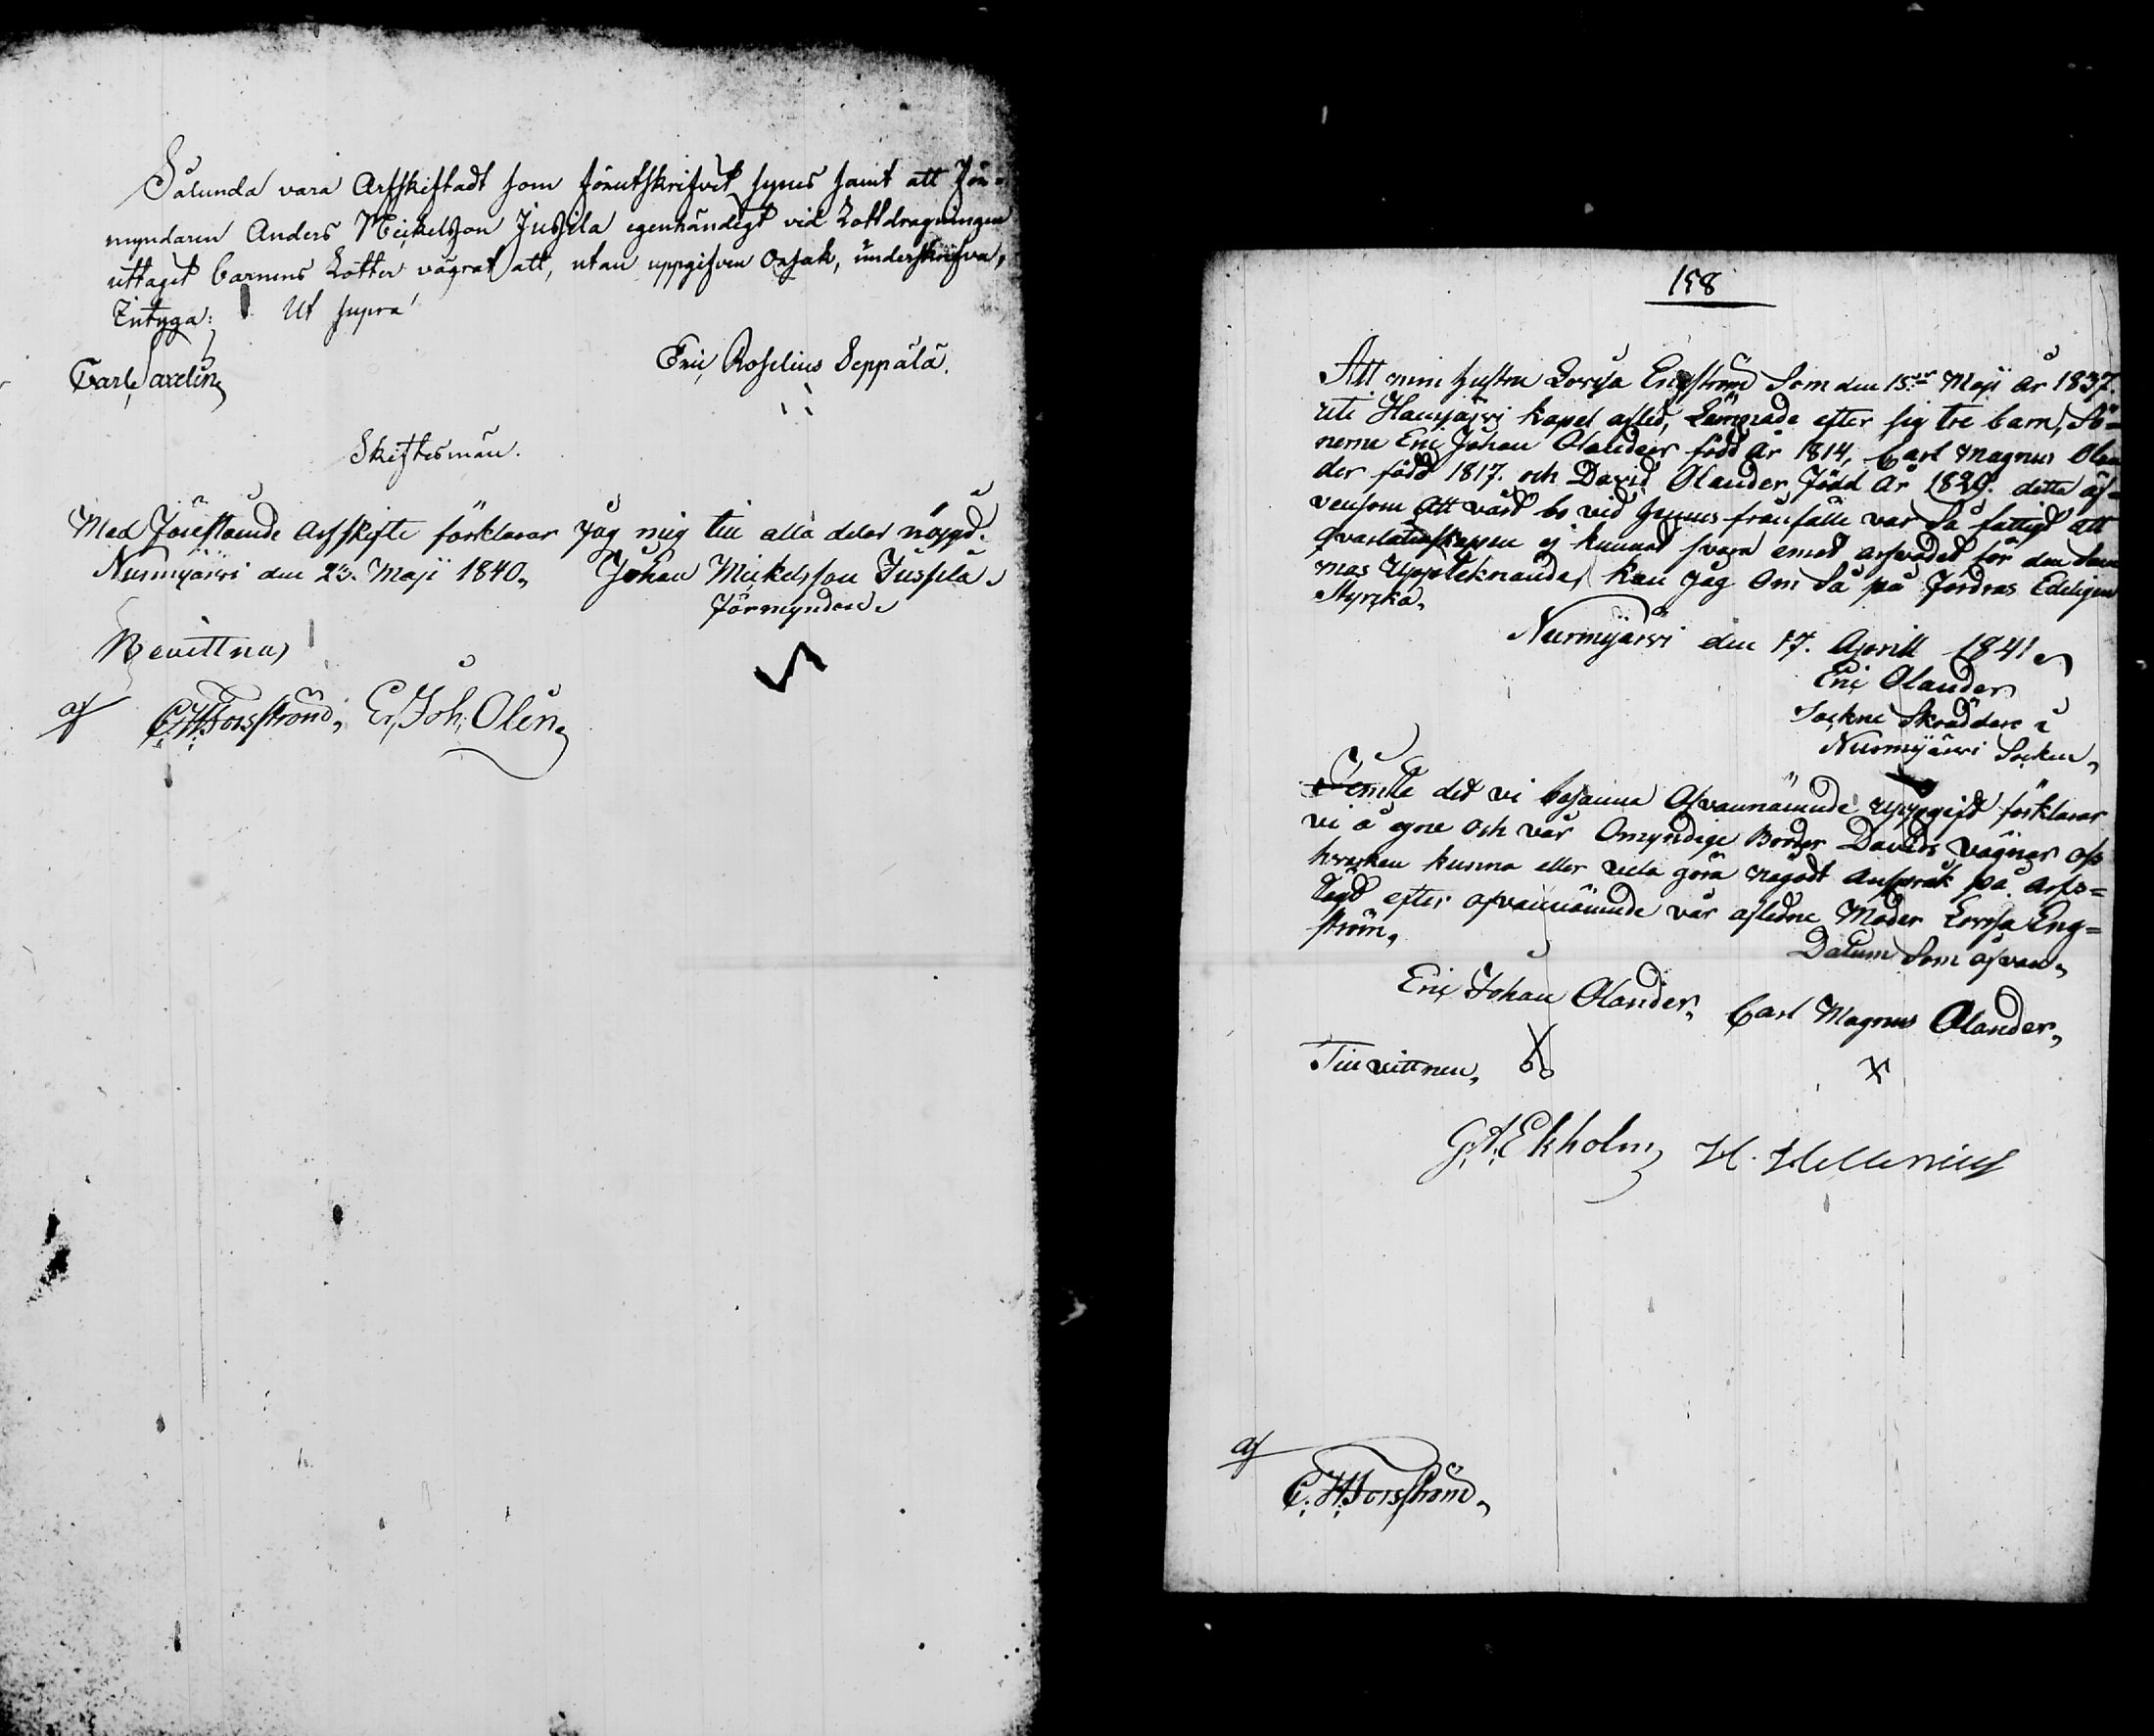 Sålunda vara Arfskiftadt som förutskrifvet synes samt att För-
myndaren Anders Mickelsson Jussila egenhändigt vid Lottdragningen
uttaget barnens Lotter vägrat att, utan uppgifven Orsak, underskrifva,
Intyga: Ut supra
Eric Roselius Seppälä.
Carl Saxelin
Skiftesmän.
Med Förestående Arfskifte förklarar Jag mig till alla delar nöjgd.
Nurmijärvi den 23. Maji 1840. Johan Mickelsson Jussila
Förmyndare
Bevittna,
af C. H. Forsström, Er. Joh. Olin
158
Att min hustru Lovisa Engström Som den 15 Maji År 1837.
uti kapel afled, Lämnade efter sig tre barn, Sö-
nerne Eric Johan Olander född År 1814, Carl Magnus Olan
der född 1817. och David Olander född År 1829. detta äf-
vensom Att vårt bo vid hennes frånfälle var Så fattigt Att
qvarlåtenskapen ej kunnat svara emot arfvodet för den Sam
mas Uppteknande, kan Jag Om Så på fordras Edeligen
Styrcka.
Nurmijärvi den 17. Aprill 1841
Eric Olander
Sockne Skräddare i
Nurmijärvi Socken,
Jemte det vi besanna Ofvannämnde uppgift förklarar
vi å egne och vår Omyndige Broder Davids vägnar oss
hvarken kunna eller vela göra någodt Anspråk på Arfs-
Lägd efter ofvannämnde vår afledne Moder Lovisa Eng-
ström.
Datum Som ofvan,
Eric Johan Olander, Carl Magnus Olander,
Till vittnen,
G. A. Ekholm H. Hellenius
af
C. H. Forsström,